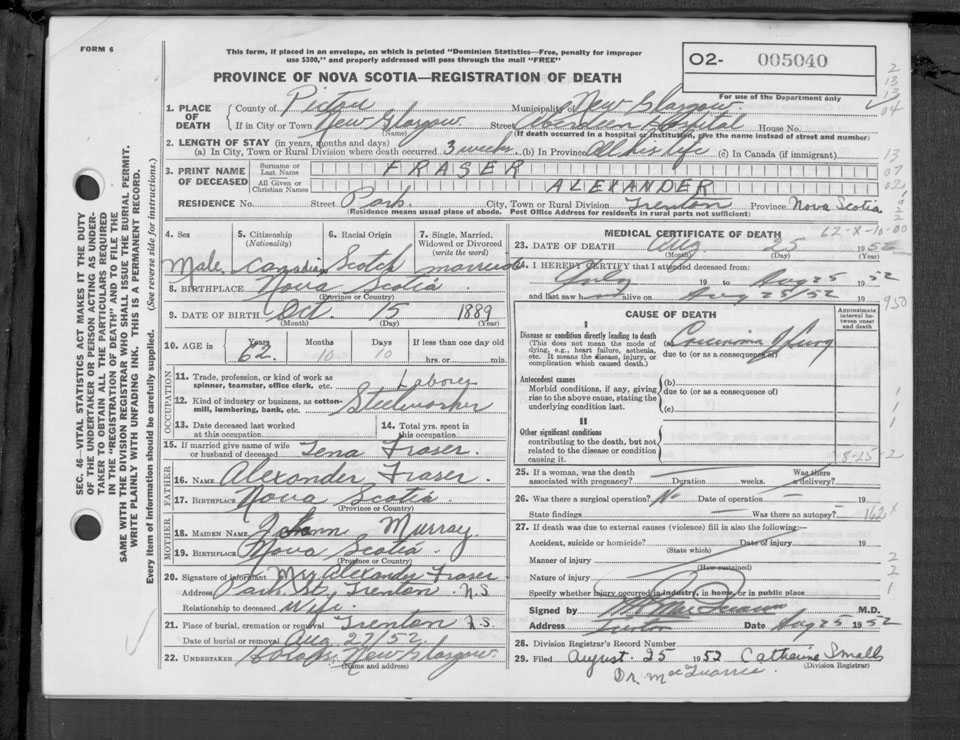 FORM 6
This form, if placed in an envelope, on which is printed "Dominion Statistics—Free, penalty for improper
use $300," and properly addressed will pass through the mail "FREE"
PROVINCE OF NOVA SCOTIA—REGISTRATION OF DEATH
O2- 005040
For use of the Department only
1. PLACE OF DEATH
County of Pictou Municipality of New Glasgow
If in City or Town New Glasgow Street Aberdeen Hospital House No.
(Name) (If death occurred in a hospital or institution, give the name instead of street and number)
2. LENGTH OF STAY (in years, months and days)
(a) In City, Town or Rural Division where death occurred 3 weeks (b) In Province All his life (c) In Canada (if immigrant)
3. PRINT NAME OF DECEASED
Surname or Last Name FRASER
All Given or Christian Names ALEXANDER
RESIDENCE No. Street Park City, Town or Rural Division Trenton Province Nova Scotia
(Residence means usual place of abode. Post Office Address for residents in rural parts not sufficient)
62-X-10-00
4. Sex 5. Citizenship (Nationality) 6. Racial Origin 7. Single, Married, Widowed or Divorced (write the word)
Male Canadian Scotch married
8. BIRTHPLACE Nova Scotia
(Province or Country)
9. DATE OF BIRTH Oct. 15 1889
(Month) (Day) (Year)
10. AGE in Years Months Days If less than one day old
62 10 10 hrs. or min.
OCCUPATION
11. Trade, profession, or kind of work as spinner, teamster, office clerk, etc. Labory
12. Kind of industry or business, as cotton-mill, lumbering, bank, etc. Steelworker
13. Date deceased last worked at this occupation
14. Total yrs. spent in this occupation
15. If married give name of wife or husband of deceased Tena Fraser.
FATHER
16. NAME Alexander Fraser.
17. BIRTHPLACE Nova Scotia
(Province or Country)
MOTHER
18. MAIDEN NAME Murray
19. BIRTHPLACE Nova Scotia
(Province or Country)
20. Signature of informant Mrs Alexander Fraser
Address Park St., Trenton N.S.
Relationship to deceased Wife.
21. Place of burial, cremation or removal Trenton N.S.
Date of burial or removal Aug 27/52.
22. UNDERTAKER New Glasgow
(Name and address)
MEDICAL CERTIFICATE OF DEATH
23. DATE OF DEATH Aug 25 1952
(Month) (Day) (Year)
24. I HEREBY CERTIFY that I attended deceased from:
July 19 to Aug 25 1952
and last saw h alive on Aug 25/52 19
950
CAUSE OF DEATH
Approximate interval between onset and death
I
Disease or condition directly leading to death
(This does not mean the mode of dying, e.g., heart failure, asthenia, etc. It means the disease, injury, or complication which caused death.)
(a) Carcinoma of Lung
due to (or as a consequence of)
Antecedent causes
Morbid conditions, if any, giving rise to the above cause, stating the underlying condition last.
(b)
due to (or as a consequence of)
(c)
II
Other significant conditions
contributing to the death, but not related to the disease or condition causing it.
8-25-2
25. If a woman, was the death associated with pregnancy? Duration weeks. Was there a delivery?
26. Was there a surgical operation? N Date of operation 19
State findings Was there an autopsy?
162 x
27. If death was due to external causes (violence) fill in also the following:—
Accident, suicide or homicide? Date of injury 19
(State which)
Manner of injury
(How sustained)
Nature of injury
Specify whether injury occurred in industry, in home, or in public place
Signed by M.D.
Address Trenton Date Aug 25 1952
28. Division Registrar's Record Number
29. Filed August 25 1952 Catherine Smalls
(Division Registrar)
SEC. 46—VITAL STATISTICS ACT MAKES IT THE DUTY
OF THE UNDERTAKER OR PERSON ACTING AS UNDER-
TAKER TO OBTAIN ALL THE PARTICULARS REQUIRED
IN THE "REGISTRATION OF DEATH" AND TO FILE THE
SAME WITH THE DIVISION REGISTRAR WHO SHALL ISSUE THE BURIAL PERMIT.
WRITE PLAINLY WITH UNFADING INK. THIS IS A PERMANENT RECORD.
Every item of Information should be carefully supplied. (See reverse side for instructions.)